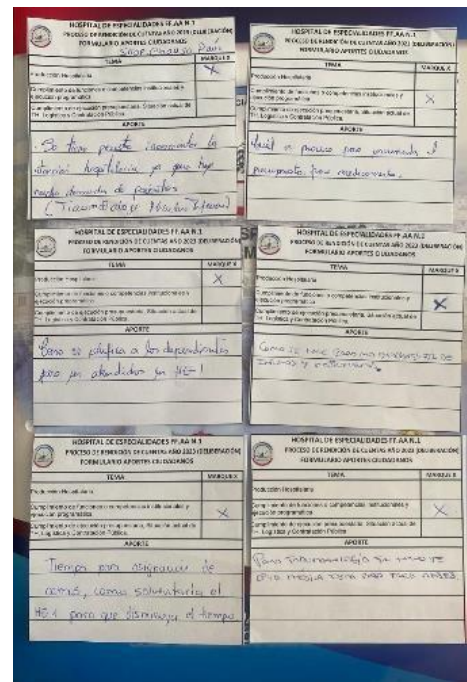 HOSPITAL DE ESPECIALIDADES FF.AA N.1
PROCESO DE RENDICIÓN DE CUENTAS AÑO 2023 (DELIBERACIÓN)
FORMULARIO APORTES CIUDADANOS
TEMA MARQUE X
Producción Hospitalaria X
Cumplimiento de funciones o competencias institucionales y
ejecución programática
Cumplimiento de ejecución presupuestaria, Situación actual de
TH, Logística y Contratación Pública.
APORTE
. Se tiene previsto incrementar la
atención hospitalaria ya que hay
mucha demanda de pacientes
HOSPITAL DE ESPECIALIDADES FF.AA N.1
PROCESO DE RENDICIÓN DE CUENTAS AÑO 2023 (DELIBERACIÓN)
FORMULARIO APORTES CIUDADANOS
TEMA MARQUE X
Producción Hospitalaria
Cumplimiento de funciones o competencias institucionales y
ejecución programática X
Cumplimiento de ejecución presupuestaria, Situación actual de
TH, Logística y Contratación Pública.
APORTE
proceso para incrementar el
presupuesto para medicamentos.
HOSPITAL DE ESPECIALIDADES FF.AA N.1
PROCESO DE RENDICIÓN DE CUENTAS AÑO 2023 (DELIBERACIÓN)
FORMULARIO APORTES CIUDADANOS
TEMA MARQUE X
Producción Hospitalaria X
Cumplimiento de funciones o competencias institucionales y
ejecución programática
Cumplimiento de ejecución presupuestaria, Situación actual de
TH, Logística y Contratación Pública.
APORTE
Como se a los dependientes
para ser atendidos en HE-1
HOSPITAL DE ESPECIALIDADES FF.AA N.1
PROCESO DE RENDICIÓN DE CUENTAS AÑO 2023 (DELIBERACIÓN)
FORMULARIO APORTES CIUDADANOS
TEMA MARQUE X
Producción Hospitalaria
Cumplimiento de funciones o competencias institucionales y
ejecución programática X
Cumplimiento de ejecución presupuestaria, Situación actual de
TH, Logística y Contratación Pública.
APORTE
Como se
HOSPITAL DE ESPECIALIDADES FF.AA N.1
PROCESO DE RENDICIÓN DE CUENTAS AÑO 2023 (DELIBERACIÓN)
FORMULARIO APORTES CIUDADANOS
TEMA MARQUE X
Producción Hospitalaria
Cumplimiento de funciones o competencias institucionales y
ejecución programática X
Cumplimiento de ejecución presupuestaria, Situación actual de
TH, Logística y Contratación Pública.
APORTE
Tiempo para asignación de
camas, como solucionaría el
HE-1 para que disminuya el tiempo
HOSPITAL DE ESPECIALIDADES FF.AA N.1
PROCESO DE RENDICIÓN DE CUENTAS AÑO 2023 (DELIBERACIÓN)
FORMULARIO APORTES CIUDADANOS
TEMA MARQUE X
Producción Hospitalaria
Cumplimiento de funciones o competencias institucionales y
ejecución programática X
Cumplimiento de ejecución presupuestaria, Situación actual de
TH, Logística y Contratación Pública.
APORTE
Para